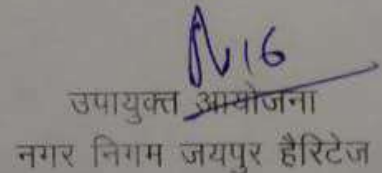 उपायुक्त आयोजना
नगर निगम जयपुर हैरिटेज